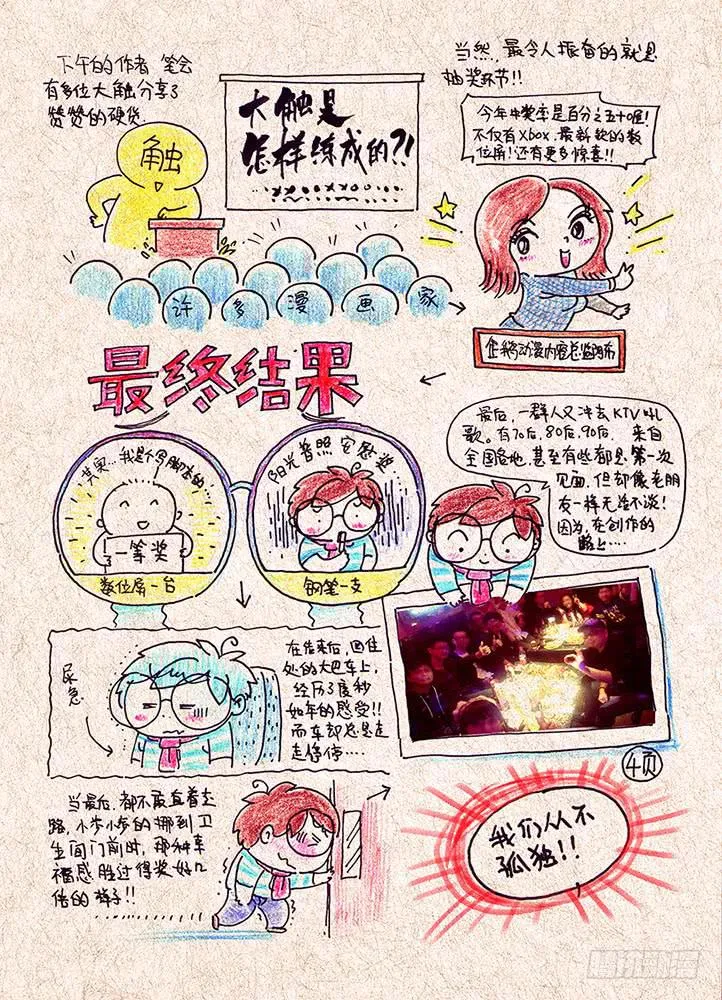 下午的作者笔会
有多位大触分享了
赞赞的硬货.
触
大触是
怎样练成的?!
许多漫画家
当然,最令人振奋的就是
抽奖环节!!
今年中奖率是百分之五十喔!
不仅有Xbox.最新款的数
位屏!还有更多惊喜!!
企鹅动漫内容总监阿布
最终结果
其实…我是个写脚本的…
一等奖
数位屏一台
阳光普照安慰奖…
钢笔一支
最后,一群人又冲去KTV吼
歌。有70后,80后,90后.来自
全国各地,甚至有些都是第一次
见面,但却像老朋
友一样无话不谈!
因为,在创作的
路上….
尿急
在结束后,回住
处的大巴车上,
经历了度秒
如年的感受!!
而车却总是走
走停停….
4页
当最后,都不敢直着走
路,小步小步的挪到卫
生间门前时,那种幸
福感胜过得奖好几
倍的样子!!
我们从不
孤独!!
腾讯动漫